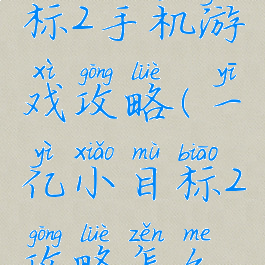 标2手机游
xì gōng lüè yī
戏攻略(一
yì xiǎo mù biāo
亿小目标2
gōng lüè zěn me
攻略怎么